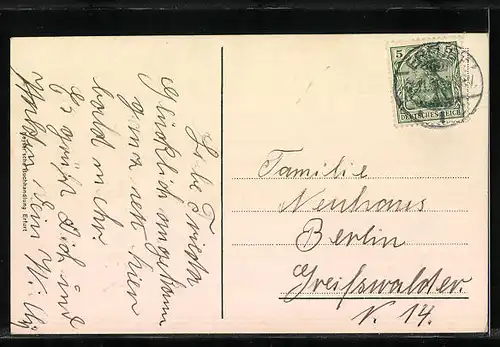 Liebe Frieda
Glücklich angekommen
ganz nett hier
bald mehr.
Es grüßt Dich und
Dein Willy
Buchhandlung Erfurt
5
DEUTSCHES REICH
Familie
Neuhaus
Berlin
Greifswalder.
N. 14.